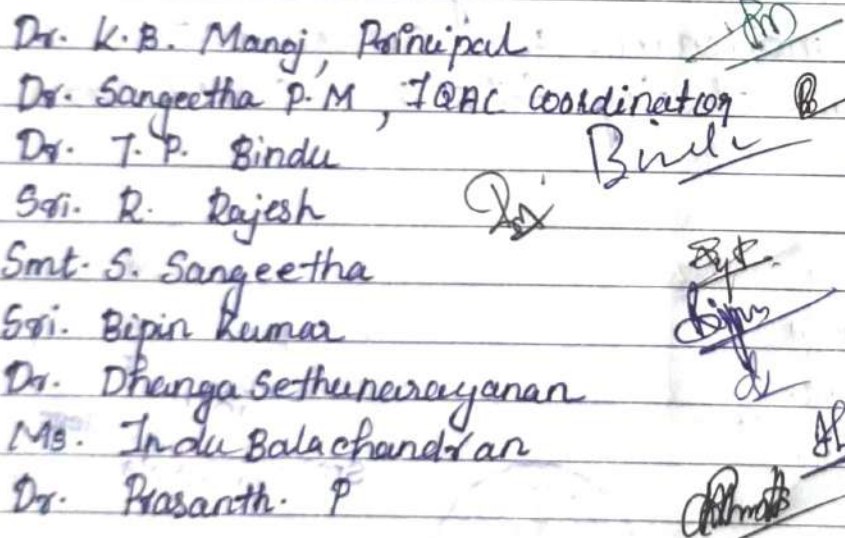 Dr. K.B. Manoj, Principal
Dr. Sangeetha P.M, IQAC Coordinator
Dr. T.P. Bindu Bindu
Sri. R. Rajesh
Smt. S. Sangeetha
Sri. Bipin Kumar
Dr. Dhanya Sethunarayanan
Ms. Indu Balachandran
Dr. Prasanth. P